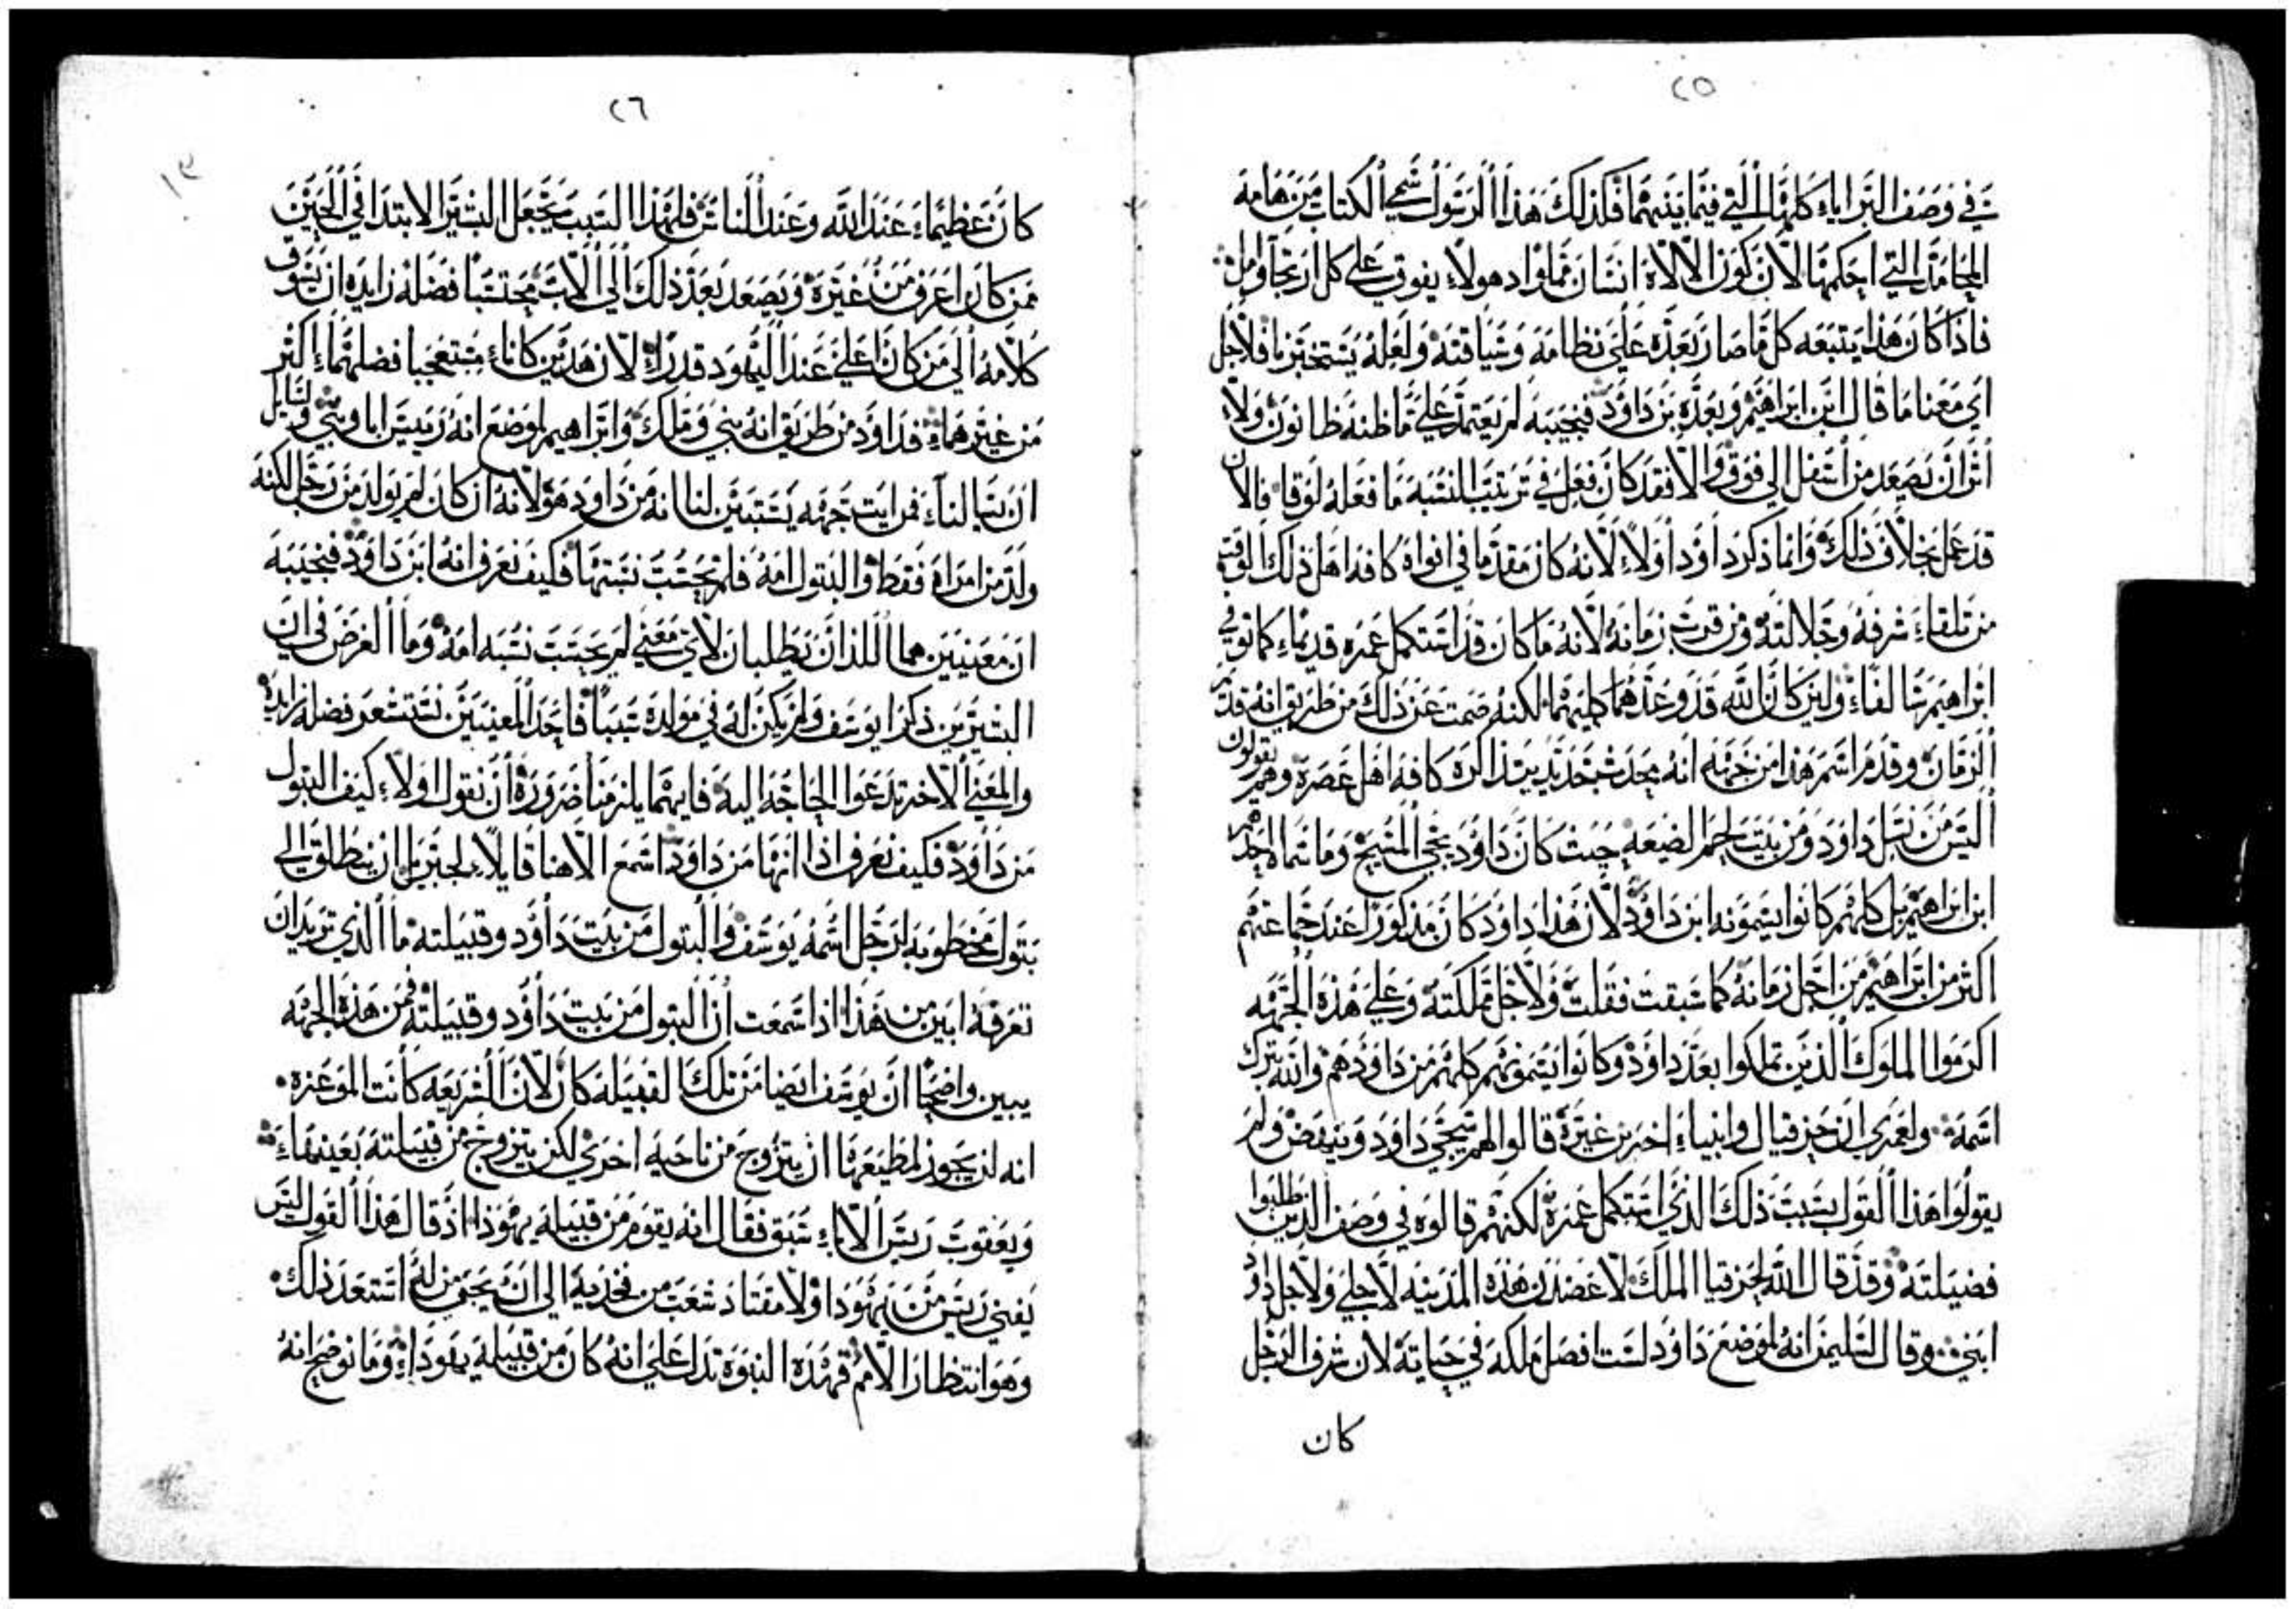 ٢٥
في وصف البرايا كلها التي فيما بينهما فكذلك هذا الرسول سمي الكتاب من هامة
المحامد التي احكمها لان كون الالاه انسان مما هولاء يفوق على كل ارتجا وامل
فاذا كان هذا يتبعه كل ما صار بعده على نظامه وسياقته ولعله يستخبرنا فلاجل
اي معنا ما قال ابن ابراهيم وبعده بن داوود فنجيبه لم يعتمد على ما ظنه ظانون ولا
اثر ان يصعد من اسفل الي فوق والا فقد كان فعل في ترتيب النسبه ما فعله لوقا فالان
قد عمل بخلاف ذلك وانما ذكر داوود اولا لانه كان مقدما في افواه كافه اهل ذلك الوقت
من تلقاء شرفه وجلالته ومن قرب زمانه لانه ما كان قد استكمل عمره قديما كما توفي
ابراهيم سالفا ولين كان الله قد وعدهما كليهما لكنه صمت عن ذلك من طريق انه قدم
الزمان وقدم اسم هذا من جهه انه يحدث جديد يتذاكره كافه اهل عصره وهم يقولون
اليس من نسل داوود ومن بيت لحم الضيعه حيث كان داوود يجي المسيح وما سماه احدهم
ابن ابراهيم بل كلهم كانوا يسمونه ابن داوود لان هذا داوود كان مذكورا عند جماعتهم
اكثر من ابراهيم من اجل زمانه كما سبقت فقلت ولاجل مملكته وعلى هذه الجهه
اكرموا الملوك الذين تملكوا بعد داوود وكانوا يسمونهم كلهم من داوودهم والله يترك
اسمه ولعمري ان حزقيال وانبياء اخر من غيره قالوا لهم سيجي داوود وينهض ولم
يقولوا هذا القول بسبب ذلك الذي استكمل عمره لكنهم قالوه في وصف الذين طلبوا
فضيلته وقد قال الله لحزقيا الملك لاعضدن هذه المدينه لاجلي ولاجل داوود
ابني وقال لسليمن انه لموضع داوود لست افصل ملكه في حياته لان شرف الرجل
كان
٢٦
١٣
كان عظيما عند الله وعند الناس فلهذا السبب يجعل البشير الابتدا في الحين
ممن كان اعرف من غيره ويصعد بعد ذلك الى الاب محتسبا فضله زايده ان يسوق
كلامه الي من كان اعلى عند اليهود قدرا لان هذين كانا متعجبا فضلهما اكثر
من غيرهما فداوود من طريق انه نبي وملك وابراهيم لموضع انه رييس ابا ونبي ولسايل
ان يسالنا فمن ايت جهه يستبين لنا انه من داوود هو لانه ان كان لم يولد من رجل لكنه
ولد من امراه فقط والبتول امه فلم يحسب نسبتها فكيف نعرف انه ابن داوود فنجيبه
ان معنيين هما اللذان يطلبان لاي معني لم يحسب نسبه امه وما الغرض في ان
البشيرين ذكرا يوسف ولم يكن له في مولده سببا فاحد المعنيين نستشعر فضله زايده
والمعني الاخر تدعوا الحاجه اليه فايهما يلزمنا ضروره ان نقول اولا كيف البتول
من داوود فكيف نعرف اذا انها من داوود اسمع الاهنا قايلا لجبريل ان ينطلق الي
بتول مخطوبه لرجل اسمه يوسف والبتول من بيت داوود وقبيلته ما الذي تريد ان
تعرفه ابين من هذا اذا سمعت ان البتول من بيت داوود وقبيلته فمن هذه الجهه
يبين واضحا ان يوسف ايضا من تلك القبيله كان لان الشريعه كانت الموعزه
انه لن يجوز لمطيعها ان يتزوج من ناحيه اخرى لكن يتزوج من قبيلته بعينها
ويعقوب رييس الاباء سبق فقال انه يقوم من قبيله يهوذا اذ قال هذا القول ليس
يفنى رييس من يهوذا ولا مقتاد شعب من فخديه الى ان يجي من له استعد ذلك
وهو انتظار الامم فهذه النبوه تدل على انه كان من قبيله يهوذا وما نوضح انه